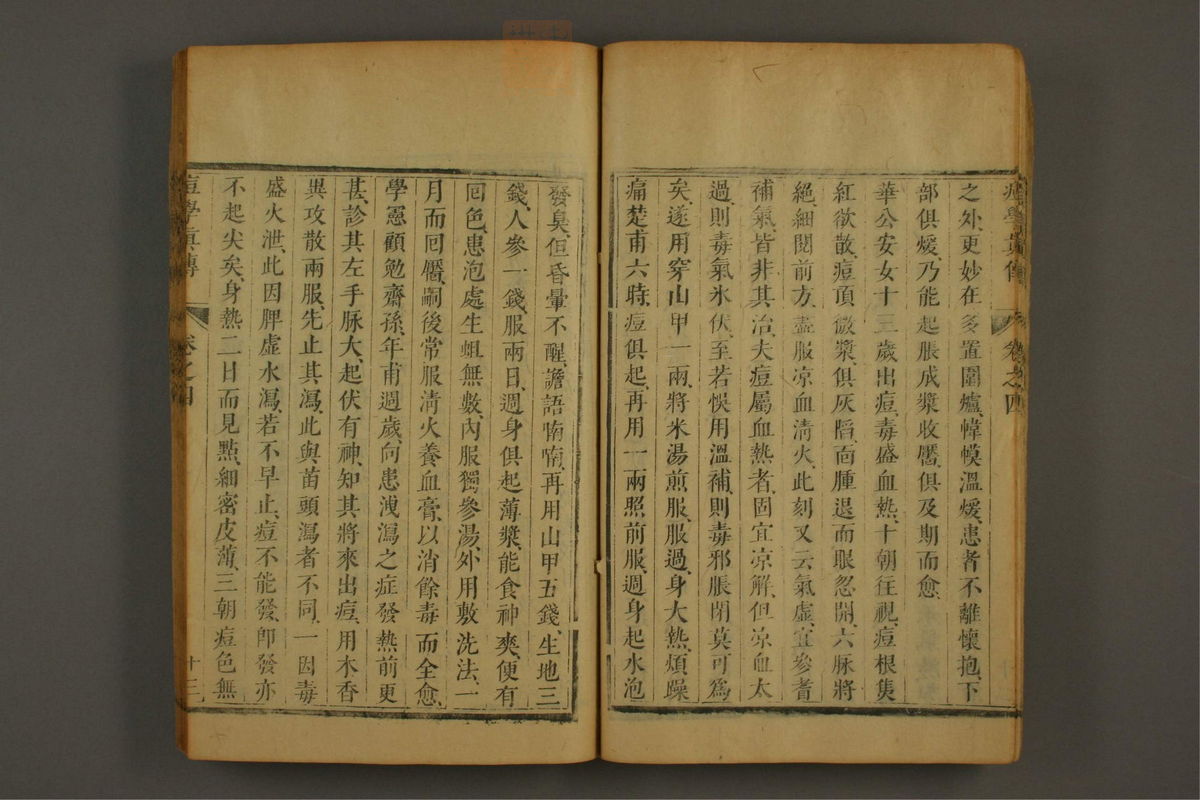 痘學真傳 卷之四
之外、更妙在多置圍爐、幃幙溫煖、患者不離懷抱、下
部俱煖、乃能起脹成漿收靨、俱及期而愈、
華公安女十三歲出痘、毒盛血熱、十朝往視、痘根隻
紅欲散、痘頂微漿、俱灰䧟、面腫退而眼忽開、六脉將
絕、細閱前方、盡服凉血清火、此刻又云氣虛、宜參耆
補氣、皆非其治、夫痘屬血熱者、固宜凉解、但凉血太
過、則毒氣氷伏、至若悞用溫補、則毒邪脹閉、莫可爲
矣、遂用穿山甲一兩、將米湯煎服、服過、身大熱、煩躁
痛楚、甫六時、痘俱起、再用一兩、照前服、週身起水泡
發臭、但昏暈不醒、譫語喃喃、再用山甲五錢、生地三
錢、人參一錢、服兩日、週身俱起薄漿、能食神爽、便有
囘色、患泡處生蛆無數、內服獨參湯、外用敷洗法、一
月而囘靨、嗣後常服清火養血膏、以消餘毒而全愈、
學憲顧勉齋孫、年甫週歲、向患洩瀉之症、發熱前更
甚、診其左手脉大、起伏有神、知其將來出痘、用木香
異攻散兩服、先止其瀉、此與苗頭瀉者不同、一因毒
盛火泄、此因脾虛水瀉、若不早止、痘不能發、卽發亦
不起尖矣、身熱二日而見點、細密皮薄、三朝痘色無
痘學真傳 卷之四 十三